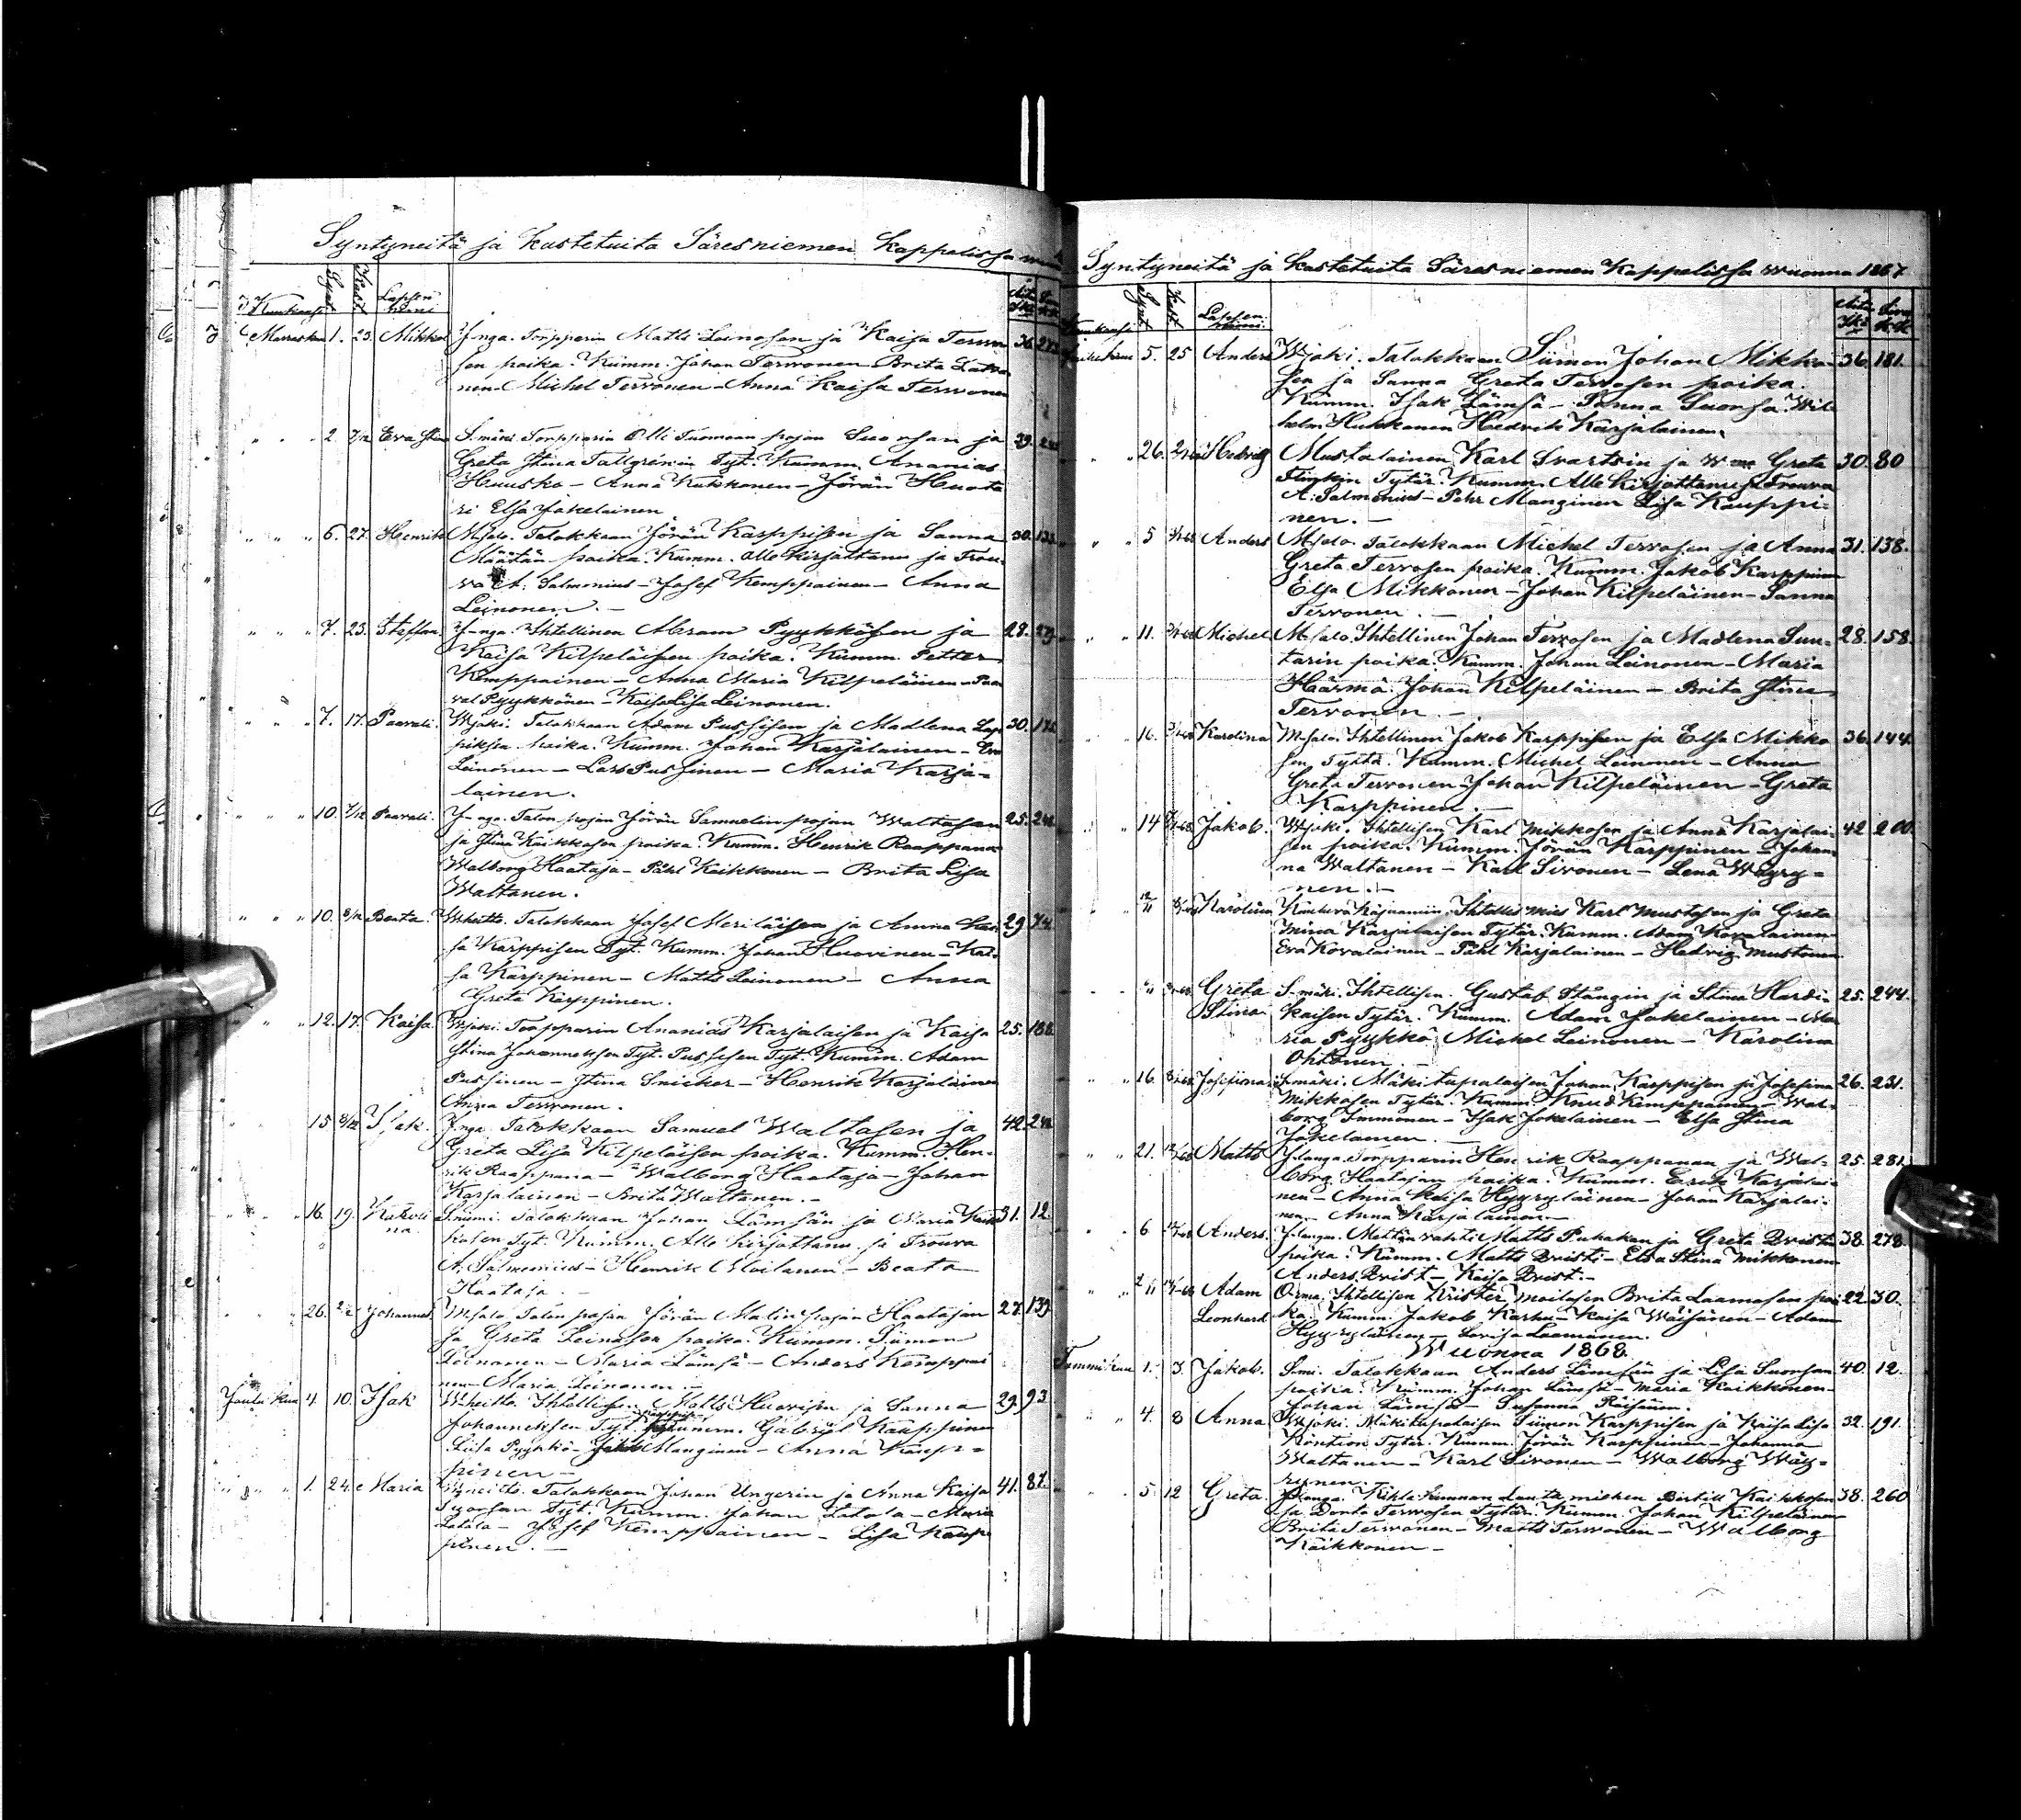 Syntyneitä ja kastetuita Säresniemen Kappelissa
Kuukausi Synt. Kast. Lapsen nimi Äitin Ikä
Marraskuu 1. 23. Mikkel Y-nga. Torpparin Matts Leinosen ja Kaisa Terwo 36. 273
sen poika. Kumm. Johan Terwonen Brita
nen Michel Terwonen Anna Kaisa Terwonen
" " 2. 7/12 Eva Stina S.mäki Torpparin Olli Tuomaan pojan Suorsan ja 29.
Greta Stina Tallgrenin Tyt. Kumm. Ananias
Huusko - Anna Kukkonen - Jörän Huota
ri Elsa Jakelainen
" " 6. 27. Henrik M.salo. Talokkaan Jörän Karppisen ja Sanna 30. 133
Määtän poika. Kumm. Alle kirjottanu ja Frou-
va A. Salmenius - Josef Kemppainen - Anna
Leinonen. -
" " 7. 23. Staffan. Y-nga. Ihtellinen Abram Pyykkösen ja 28. 279
Kaisa Kilpeläisen poika. Kumm. Petter
Kemppainen - Anna Maria Kilpeläinen - Paa
val Pyykkönen - Kaisa Lisa Leinonen.
" " 7. 17. Paavali. W.joki. Talokkaan Adam Pussisen ja Madlena Lap 30. 175
piksen poika. Kumm. Johan Karjalainen - Eva
Leinonen - Lars Pussinen - Maria Karja-
lainen.
" " 10. 7/12 Paavali. Y-nga. Talon pojan Jörän Samuelin pojan Waltasen 25. 248
ja Stina Kaikkosen poika. Kumm. Henrik Raappana
Walborg Haataja - Påhl Kaikkonen - Brita Lisa
Waltanen.
" " 10. 8/12 Beata. W.heitto. Talokkaan Josef Meriläisen ja Anna Kai 29. 74.
sa Karppisen Tyt. Kumm. Johan Huovinen - Kai-
sa Karppinen - Matts Leinonen - Anna
Greta Karppinen.
" " 12. 17. Kaisa. W.joki. Torpparin Ananias Karjalaisen ja Kaisa 25. 188.
Stina Johanneksen Tyt. Pussisen Tyt. Kumm. Adam
Pussinen - Stina Snicker - Henrik Karjalainen
Anna Terwonen.
15 8/12 Isak. Y.nga. Talokkaan Samuel Waltasen ja 42. 248
Greta Lisa Kilpeläisen poika. Kumm. Hen-
rik Raappana - Walborg Haataja - Johan
Karjalainen - Brita Waltanen. -
" " 16. 19. Karoli S.niemi. Talokkaan Johan Lämsän ja Maria Kaik 31. 12.
na kosen Tyt. Kumm. Alle kirjottanu ja Frouva
A. Salmenius - Henrik Moilanen - Beata
Haataja. -
" 26. Johannes M.salo Talon pojan Jörän Malin pojan Haatajan 27. 139
ja Greta Leinosen poika. Kumm. Siimon
Leinonen - Maria Lämsä - Anders Kemppai
nen - Maria Leinonen. -
Joulu kuu 4. 10. Isak W.heitto. Ihtellisen Matts Huovisen ja Sanna 29. 93
Johanneksen Tyt. Kumm. Gabriel Kauppinen
Liisa Pyykkö - Manginen - Anna Kaup-
pinen -
" " 1. 24. Maria W.heitto. Talokkaan Johan Ungerin ja Anna Kaisa 41. 87.
Suorsan Tyt. Kumm. Johan Latola - Maria
Latola - Josef Kemppainen - Lisa Kaup
pinen. -
Syntyneitä ja kastetuita Säresniemen Kappelissa wuonna 1867
Kuukausi Synt. Kast. Lapsen nimi Äitin Ikä
Joulukuu 5. 25 Anders W.joki. Talokkaan Siimon Johan Mikko- 36. 181.
sen ja Sanna Greta Terwosen poika.
Kumm. Isak Lämsä - Sanna Suorsa Wil
helm Hukkanen Hedvik Karjalainen.
" " 26. Hedvig Mustalainen Karl Svartsin ja w Greta 30. 80
Tytär. Kumm. Alle Kirjottanu ja Frouva
A. Salmenius - Pehr Manginen Lisa Kauppi-
nen. -
" " 5 Anders M.salo. Talokkaan Michel Terwosen ja Anna 31. 138.
Greta Terwosen poika. Kumm. Jakob Karppinen
Elsa Mikkonen - Johan Kilpeläinen - Sanna
Terwonen. -
" " 11. Michel M.salo. Ihtellinen Johan Terwosen ja Madlena Suu- 28. 158.
tarin poika. Kumm. Johan Leinonen - Maria
Härmä Johan Kilpeläinen - Brita Stina
Terwonen. -
" " 16. Karolina M-salo. Ihtellinen Jakob Karppisen ja Elsa Mikko 36. 144.
sen Tyttä. Kumm. Michel Leinonen - Anna
Greta Terwonen Johan Kilpeläinen - Greta
Karppinen. -
" 14 Jakob. W.joki. Ihtellisen Karl Mikkosen ja Anna Karjalai- 42. 200.
sen poika. Kumm. Jörän Karppinen - Johan
na Waltanen - Karl Sivonen - Lena Wäyry-
nen. -
" 12/11 Karolina Ihtellis mies Karl Mustosen ja Greta
Mina Karjalaisen Tytär. Kumm. Adam Kovalainen
Eva Kovalainen - Påhl Karjalainen - Hedvig Mustonen
" Greta S-mäki. Ihtellisen Gustaf Stångin ja Stina Hardi- 25. 244.
Stina kaisen Tytär. Kumm. Adam Jakelainen - Ma
ria Pyykkö Michel Leinonen - Karolina
Ohtonen. -
" " 16. Josefina. S-mäki. Mäkitupalaisen Johan Karppisen ja Josefina 26. 231.
Mikkosen Tytär. Kumm. Knud Kemppainen - Wal-
borg Immonen - Isak Jakelainen - Elsa Stina
Jakelainen. -
" " 21. Matts Y.langa. Torpparin Henrik Raappanan ja Wal- 25. 281.
borg Haatajan poika. Kumm. Karjalai-
nen - Anna Kaisa Hyyryläinen - Johan Karjalai-
nen - Anna Karjalainen. -
" " 6 Anders. Y.langan. Mettän vahti Matts Pakakan ja Greta Bristi 38. 278.
poika. Kumm. Matts Bristi - Elsa Stina Mikkonen
Anders Brist - Kaisa Brist. -
" Adam Ihtellisen Krister Moilasen Brita Laamasen poi 22. 30.
Leonhard ka. Kumm. Jakob Karhu - Kaisa Wäisänen - Adam
Hyyryläinen - Lovisa Laamanen.
Wuonna 1868.
Tammikuu 1. 3. Jakob. S.mi. Talokkaan Anders Lämsän ja Lisa Suorsan 40. 12.
poika. Kumm. Johan Lämsä - Maria Kaikkonen -
Johan Lämsä - Susanna Räisänen.
" " 4. 8 Anna W.joki. Mäkitupalaisen Siimon Karppisen ja Kaisa Lisa 32. 191.
Röntion Tytär. Kumm. Jörän Karppinen - Johanna
Waltanen - Karl Sivonen - Walborg Wäy-
rynen. -
" " 5 12 Greta. Y.langa. Kihlakunnan Lautamiehen Bertill Kaikkosen 38. 260
ja Dorda Terwosen Tytär. Kumm. Johan Kilpeläinen
Brita Terwonen - Matts Terwonen - Walborg
Kaikkonen -